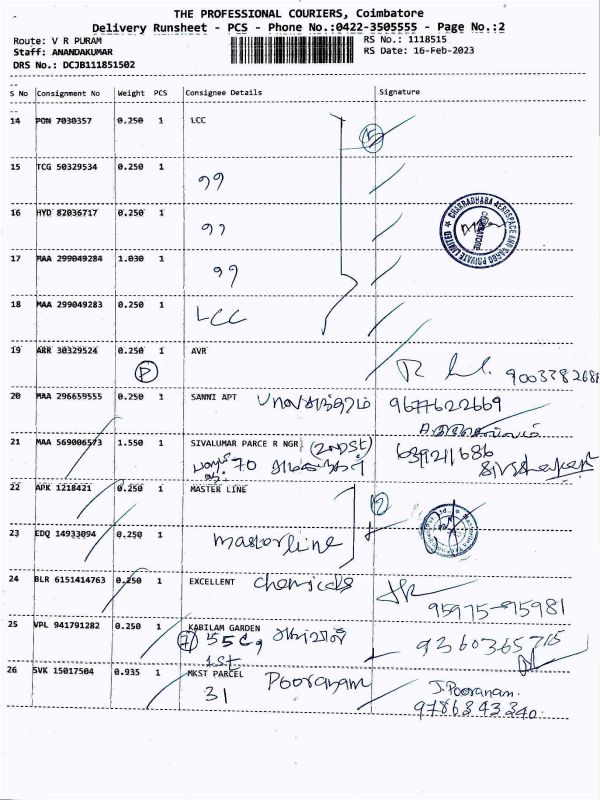 THE PROFESSIONAL COURIERS, Coimbatore
Delivery Runsheet - PCS - Phone No.:0422-3505555 - Page No.:2
Route: V R PURAM
RS No.: 1118515
Staff: ANANDAKUMAR
RS Date: 16-Feb-2023
DRS No.: DCJB111851502
S No Consignment No Weight PCS Consignee Details Signature
14 PON 7030357 0.250 1 LCC
15
15 TCG 50329534 0.250 1
16 HYD 82036717 0.250 1
17 MAA 299049284 1.030 1
CHAKRADHARA AEROSPACE AND CARGO PRIVATE LIMITED
COIMBATORE
18 MAA 299049283 0.250 1 LCC
19 ARR 30329524 0.250 1 AVR
P
9003782681
20 MAA 296659555 0.250 1 SANNI APT 9677622669
21 MAA 569006573 1.550 1 SIVALUMAR PARCE R NGR (2nd St)
70
22 APK 1218421 0.250 1 MASTER LINE
23 EDQ 14933094 0.250 1 masterline
24 BLR 6151414763 0.250 1 EXCELLENT chemicals
95975-95981
25 VPL 941791282 0.250 1 KABILAM GARDEN
1st
26 SVK 15017504 0.935 1 MKST PARCEL Pooranam
31
J. Pooranam.
9786343340.